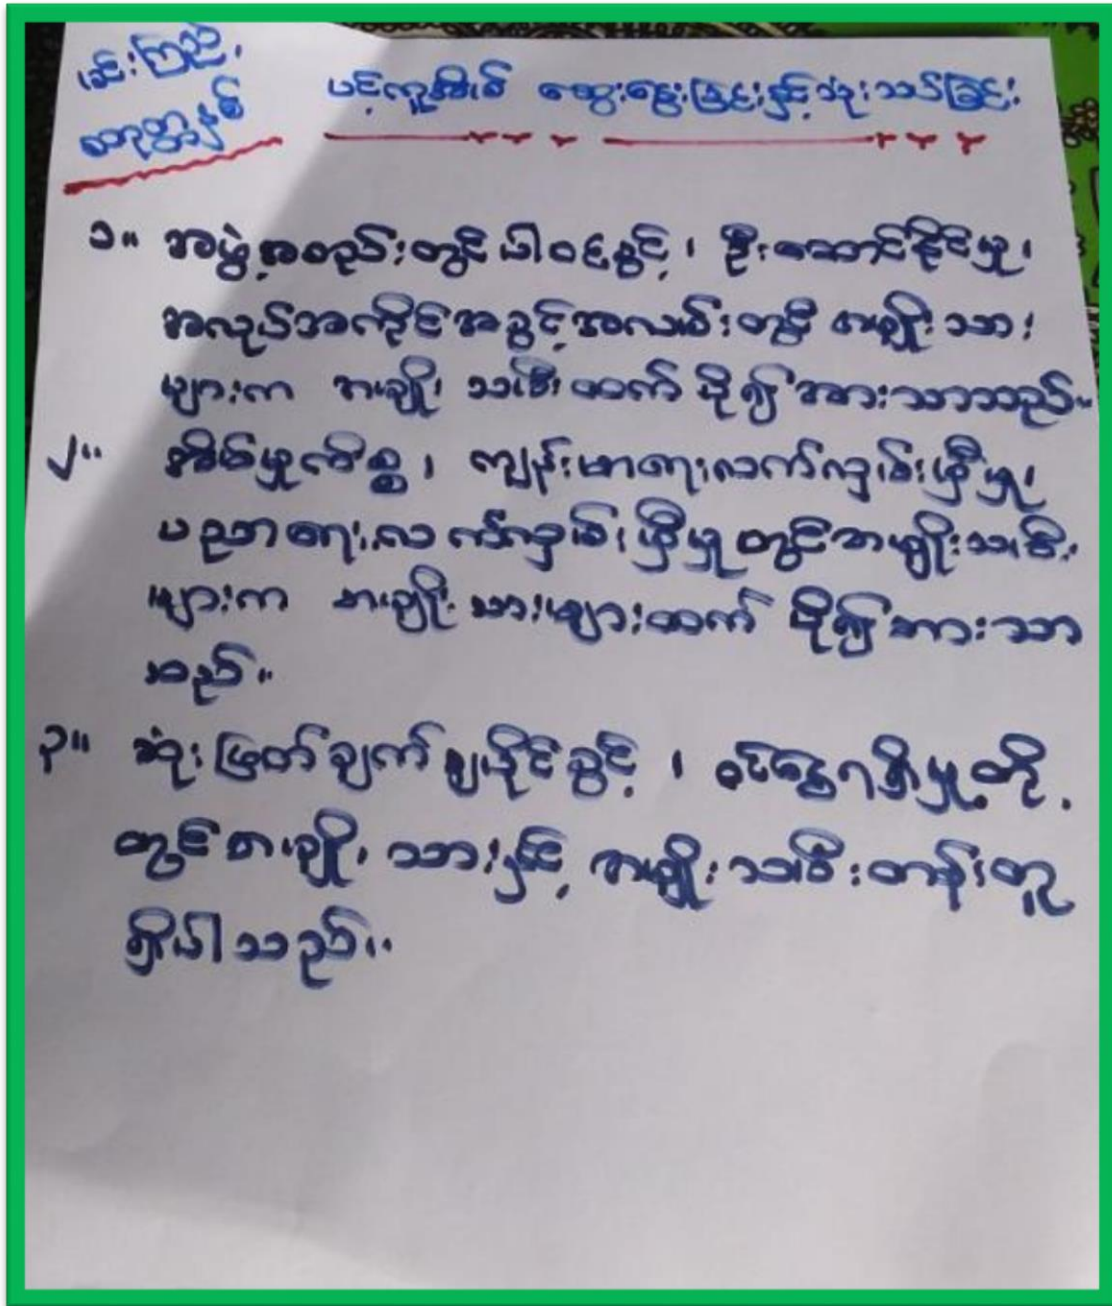 ခင်းကြည့်,
တာတ္တနစ်
ပင့်ကူအိမ် ဆွေးနွေးခြင်းနှင့်သုံးသပ်ခြင်း
၁။ အဖွဲ့အစည်းတွင်ပါဝင်ခွင့်၊ ဦးဆောင်နိုင်မှု၊
အလုပ်အကိုင်အခွင့်အလမ်းတွင် အမျိုးသား
များက အမျိုးသမီးထက်ပို၍အားသာသည်။
၂။ အိမ်မှုကိစ္စ၊ ကျန်းမာရေးလက်လှမ်းမှီမှု၊
ပညာရေးလက်လှမ်းမှီမှုတွင်အမျိုးသမီး
များက အမျိုးသားများထက် ပို၍အားသာ
သည်။
၃။ ဆုံးဖြတ်ချက်ချနိုင်ခွင့်၊ ဝင်ငွေရရှိမှုတို့
တွင်အမျိုးသားနှင့် အမျိုးသမီးတန်းတူ
ရှိပါသည်။